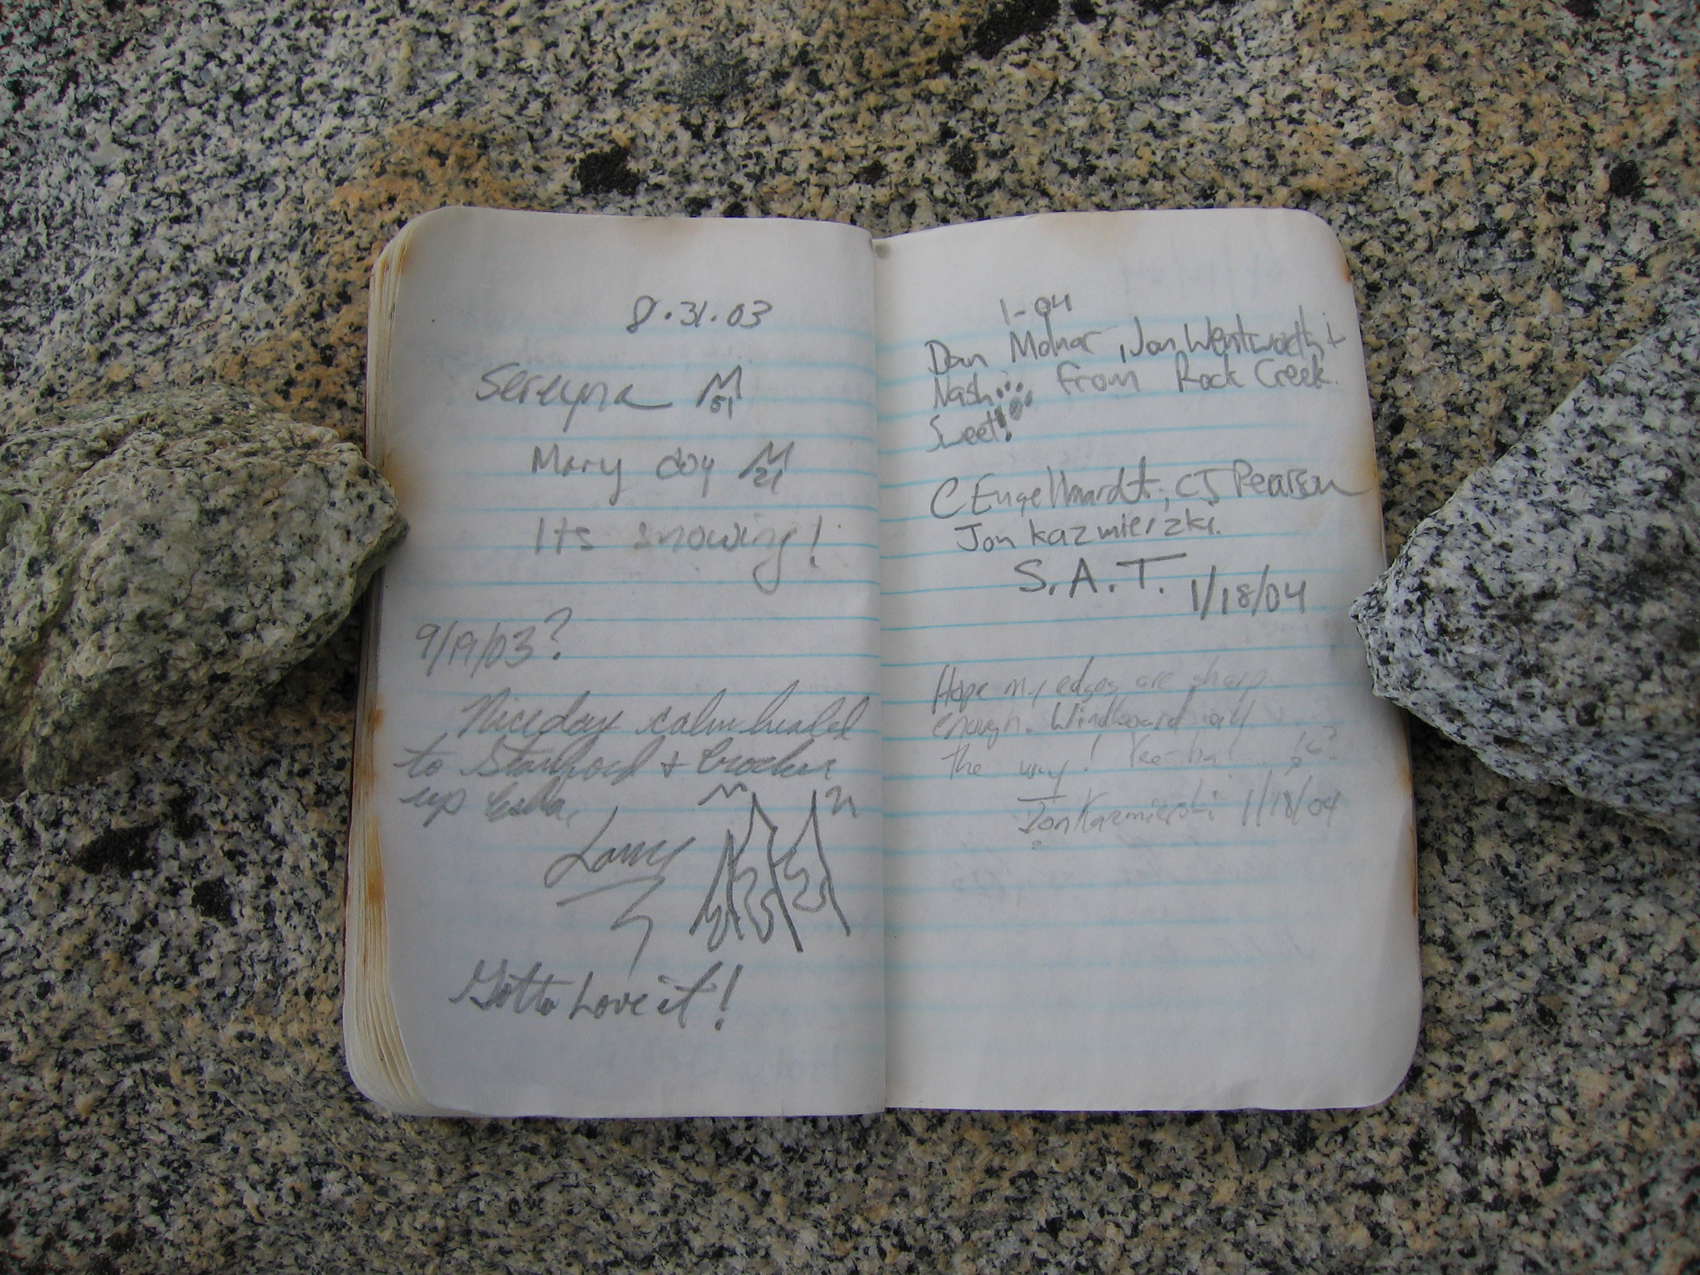 8.31.03
Serayna 51
Mary doy 21
Its snowing!
9/19/03?
Nice day calm headed
to Stanford + Crocker
up
Larry
Gotto Love it!
1-04
Dan Molnar, Jon Wentworth, +
Nash from Rock Creek.
Sweet!
C Engelhardt, CJ Pearson
Jon Kazmierzki.
S.A.T. 1/18/04
Hope my edges are sharp
enough. Windboard all
the way! Yee-ha!
Jon Kazmierski 1/18/04